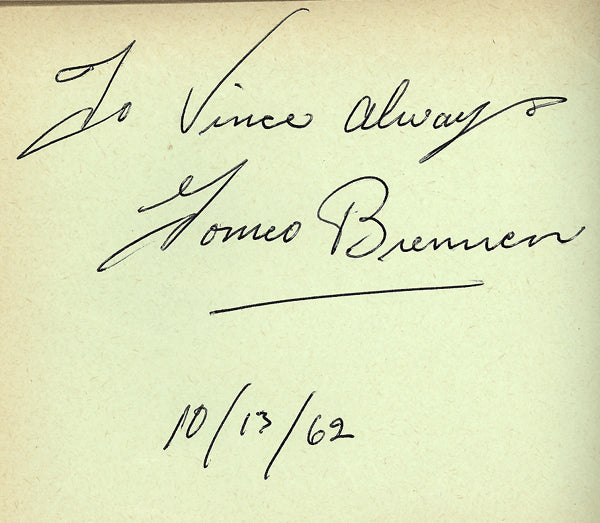 To Vince Always
Gomeo Brennen
10/13/62